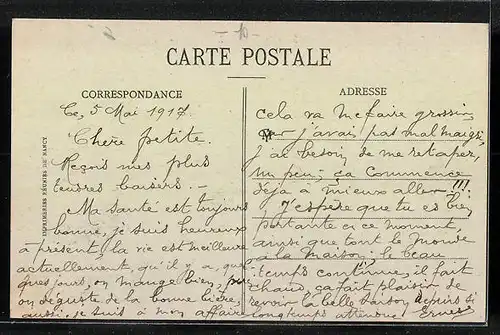 10
CARTE POSTALE
CORRESPONDANCE
Ce, 5 Mai 1917.
Chère petite.
Reçois mes plus
tendres baisers. —
Ma santé est toujours
bonne, je suis heureux
à présent, la vie est meilleure
actuellement, qu'il y a, quel
ques jours, on mange bien, puis
on déguste de la bonne bière,
aussi, je suis à mon affaire
ADRESSE
cela va me faire grossir,
car j'avais pas mal maigri,
j'ai besoin de me retaper,
un peu, ça commence
déjà à mieux aller !!!
J'espère que tu es bien
portante en ce moment,
ainsi que tout le monde
à la maison, le beau
temps continue, il fait
chaud, ça fait plaisir de
revoir la belle saison depuis si
longtemps attendue. Ernest
IMPRIMERIES RÉUNIES DE NANCY